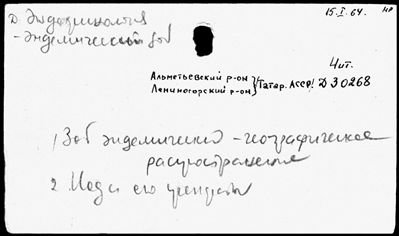 Д. Эндокринология
15.I.64. НР
- Эндемический зоб
Чит.
Альметьевский р-он
Лениногорский р-он } Татар. АССР! Д30268
1 Зоб эндемический - географическое
распространение
2 Иод и его